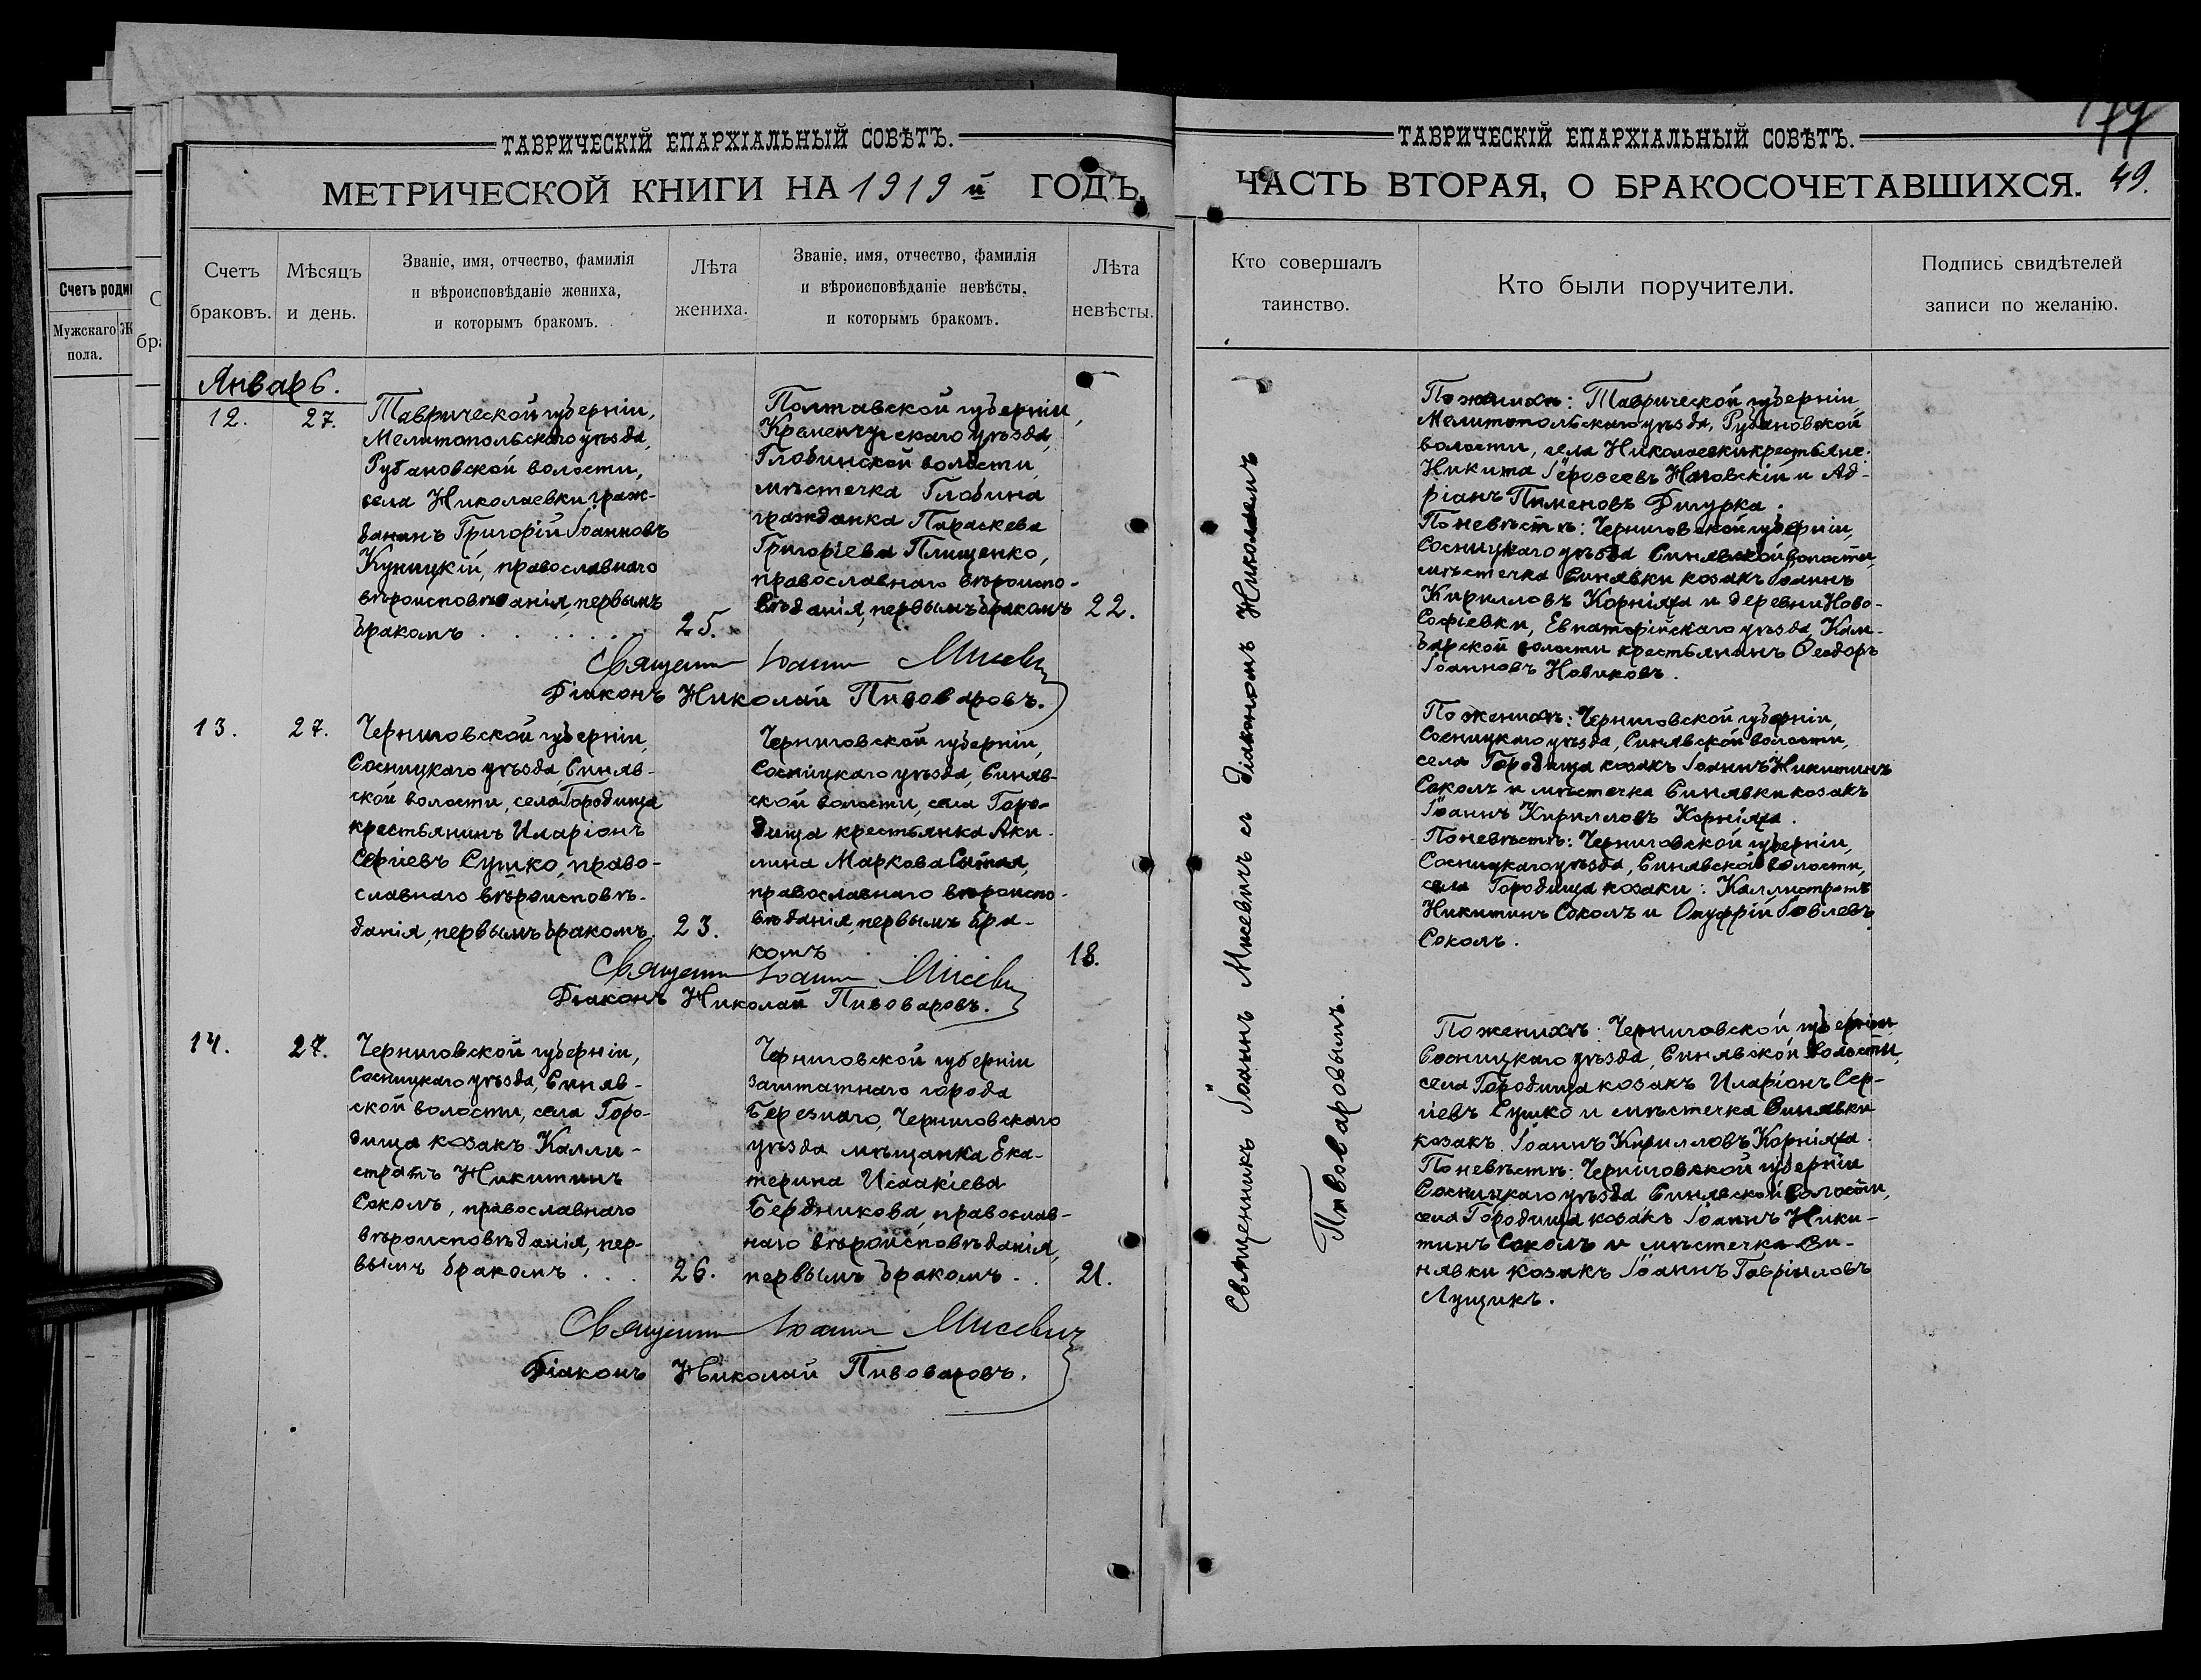 ТАВРИЧЕСКІЙ ЕПАРХІАЛЬНЫЙ СОВѢТЪ.
МЕТРИЧЕСКОЙ КНИГИ НА 1919 й ГОДЪ.
Счетъ родив
Мужскаго
пола.
Счетъ
браковъ.
Мѣсяцъ
и день.
Званіе, имя, отчество, фамилія
и вѣроисповѣданіе жениха,
и которымъ бракомъ.
Лѣта
жениха.
Званіе, имя, отчество, фамилія
и вѣроисповѣданіе невѣсты,
и которымъ бракомъ.
Лѣта
невѣсты.
Январь.
12.
27.
Таврической губерніи,
Мелитопольскаго уѣзда,
Рубановской волости,
села Николаевки граж-
данинъ Григорій Іоанновъ
Куницкій, православнаго
вѣроисповѣданія, первымъ
бракомъ . . . . . .
25.
Полтавской губерніи,
Кременчугскаго уѣзда,
Глобинской волости,
мѣстечка Глобина
гражданка Параскева
Григоріева Плищенко,
православнаго вѣроиспо-
вѣданія, первымъ бракомъ
22.
Священник Іоанн Мисевич
Діаконъ Николай Пивоваровъ.
13.
27.
Черниговской губерніи,
Сосницкаго уѣзда, Синяв-
ской волости, села Городища
крестьянинъ Иларіонъ
Сергіевъ Сушко, право-
славнаго вѣроисповѣ-
данія, первымъ бракомъ.
23.
Черниговской губерніи,
Сосницкаго уѣзда, Синяв-
ской волости, села Горо-
дища крестьянка Аки-
лина Маркова
православнаго вѣроиспо-
вѣданія, первымъ бра-
комъ
18.
Священник Іоанн Мисевич
Діаконъ Николай Пивоваровъ.
14.
27.
Черниговской губерніи,
Сосницкаго уѣзда, Синяв-
ской волости, села Горо-
дища козакъ Калли-
стратъ Никитинъ
Соколъ, православнаго
вѣроисповѣданія, пер-
вымъ бракомъ . . .
26.
Черниговской губерніи
заштатнаго города
Березнаго, Черниговскаго
уѣзда мѣщанка Ека-
терина Исаакіева
Бердникова, православ-
наго вѣроисповѣданія,
первымъ бракомъ . .
21.
Священник Іоанн Мисевич
Діаконъ Николай Пивоваровъ.
ТАВРИЧЕСКІЙ ЕПАРХІАЛЬНЫЙ СОВѢТЪ.
ЧАСТЬ ВТОРАЯ, О БРАКОСОЧЕТАВШИХСЯ. 49.
Кто совершалъ
таинство.
Кто были поручители.
Подпись свидѣтелей
записи по желанію.
Священникъ Іоаннъ Мисевичъ съ діакономъ Николаемъ
Пивоваровымъ.
По женихѣ: Таврической губерніи
Мелитопольскаго уѣзда, Рубановской
волости, села Николаевки крестьяне:
Никита Наговскій и Ад-
ріанъ Пименовъ Фигурка.
По невѣстѣ: Черниговской губерніи,
Сосницкаго уѣзда Синявской волости,
мѣстечка Синявки козакъ Іоаннъ
Кирилловъ Корніяка и деревни Ново-
Софіевки, Евпаторійскаго уѣзда, Кам-
барской волости крестьянинъ Ѳеодоръ
Іоанновъ Новиковъ.
По женихѣ: Черниговской губерніи,
Сосницкаго уѣзда, Синявской волости,
села Городища козакъ Іоаннъ Никитинъ
Соколъ и мѣстечка Синявки козакъ
Іоаннъ Кирилловъ Корніяка.
По невѣстѣ: Черниговской губерніи,
Сосницкаго уѣзда, Синявской волости,
села Городища козаки: Каллистратъ
Никитинъ Соколъ и Онуфрій Іовлевъ
Соколъ.
По женихѣ: Черниговской губерніи
Сосницкаго уѣзда, Синявской волости,
села Городища козакъ Иларіонъ Сер-
гіевъ Сушко и мѣстечка Синявки
козакъ Іоаннъ Кирилловъ Корніяка.
По невѣстѣ: Черниговской губерніи
Сосницкаго уѣзда Синявской волости,
села Городища козакъ Іоаннъ Ники-
тинъ Соколъ и мѣстечка Си-
нявки козакъ Іоаннъ Гавріиловъ
Лущикъ.